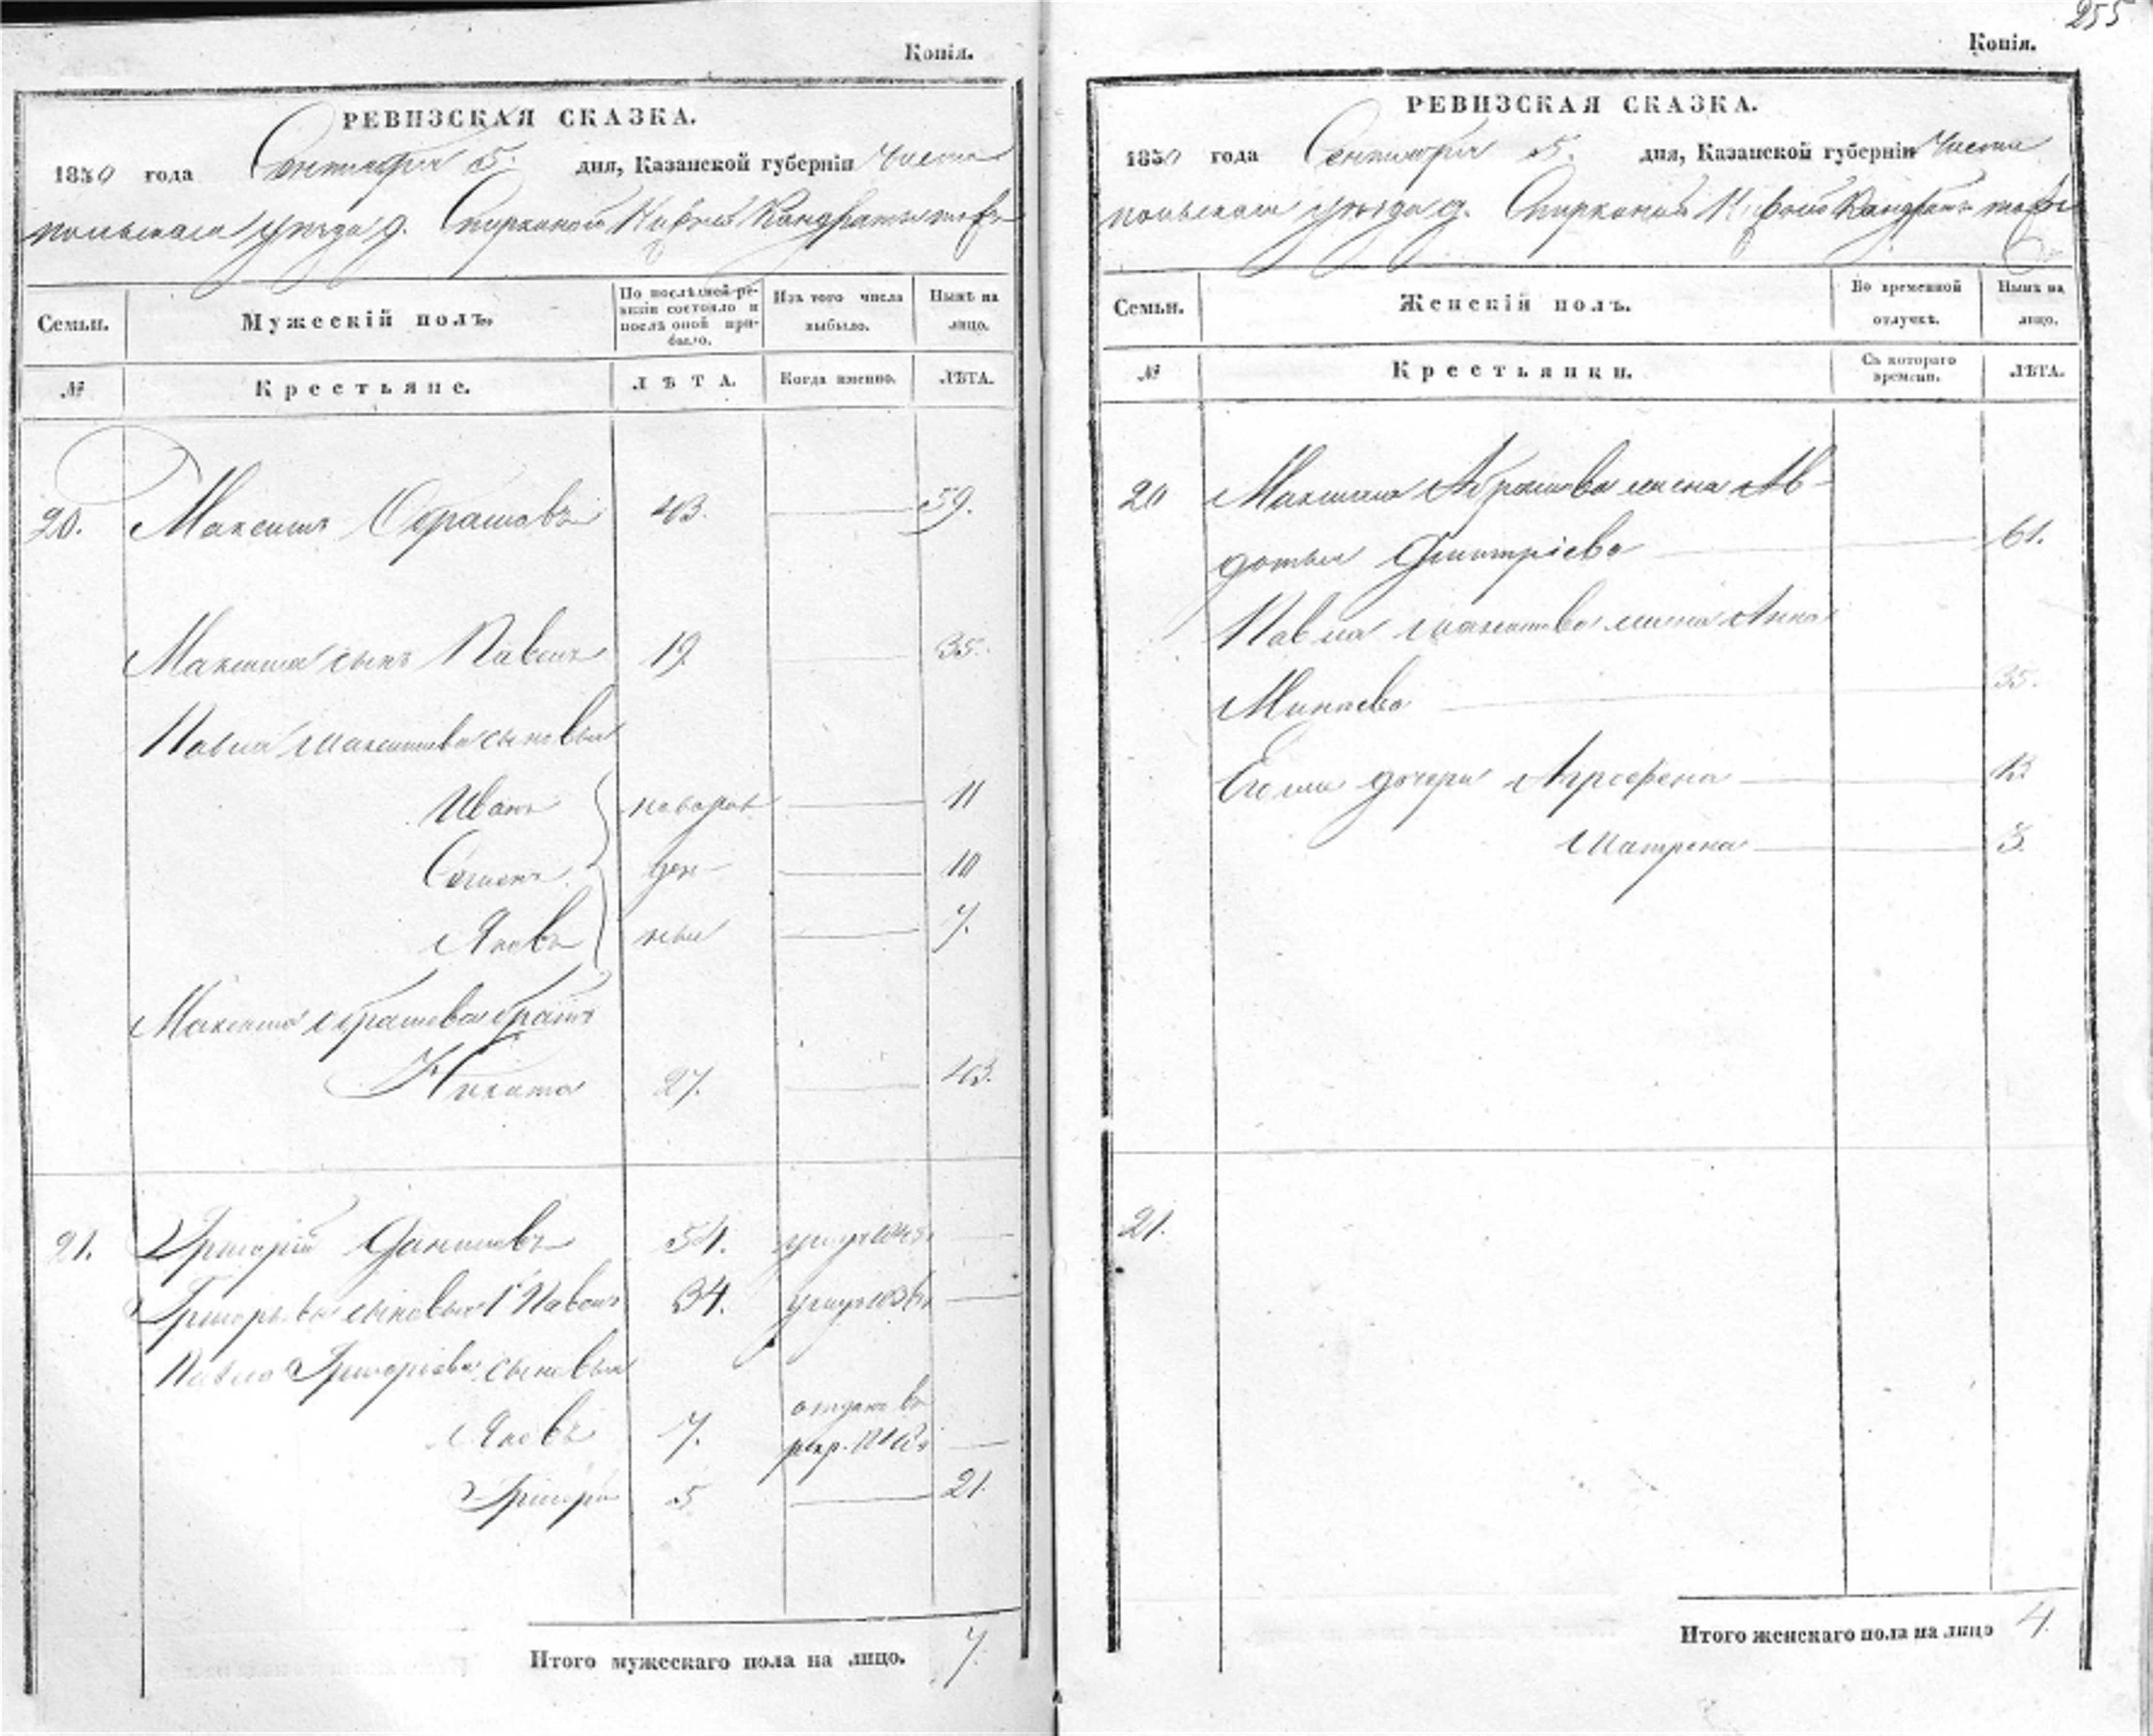 Копія.
РЕВИЗСКАЯ СКАЗКА.
1850 года Сентября 5. дня, Казанской губерніи Чисто
польскаго уѣзда д.
Семьи. Мужескій полъ. По послѣдней ре- Изъ того числа Нынѣ на
визіи состояло и выбыло. лицо.
послѣ оной при-
было.
№ Крестьяне. ЛѢТА. Когда именно. ЛѢТА.
20. Максимъ Обрамовъ 43. 59.
Максима сынъ Павелъ 19. 35.
Павла Максимова сыновья
Иванъ новорож 11
Семенъ ден 10
Яковъ ные 7.
Максима Абрамова братъ
Никита 27. 43.
21. Григорій Даниловъ 54.
Григорьевы сыновья 1 Павелъ 34.
Павла Григорьева сыновья
Яковъ 7. отданъ въ
рекр.
Григорій 5 21.
Итого мужескаго пола на лицо. 7.
255
Копія.
РЕВИЗСКАЯ СКАЗКА.
1850 года Сентября 5. дня, Казанской губерніи Чисто
польскаго уѣзда д.
Семьи. Женскій полъ. Во временной Нынѣ на
отлучкѣ. лицо.
№ Крестьянки. Съ котораго ЛѢТА.
времени.
20 Максима Абрамова жена Ав-
дотья Дмитріева 61.
Павла Максимова жена Анна
Минаева 35.
Его же дочери Агрофена 13
Матрена 3.
21.
Итого женскаго пола на лицо 4.